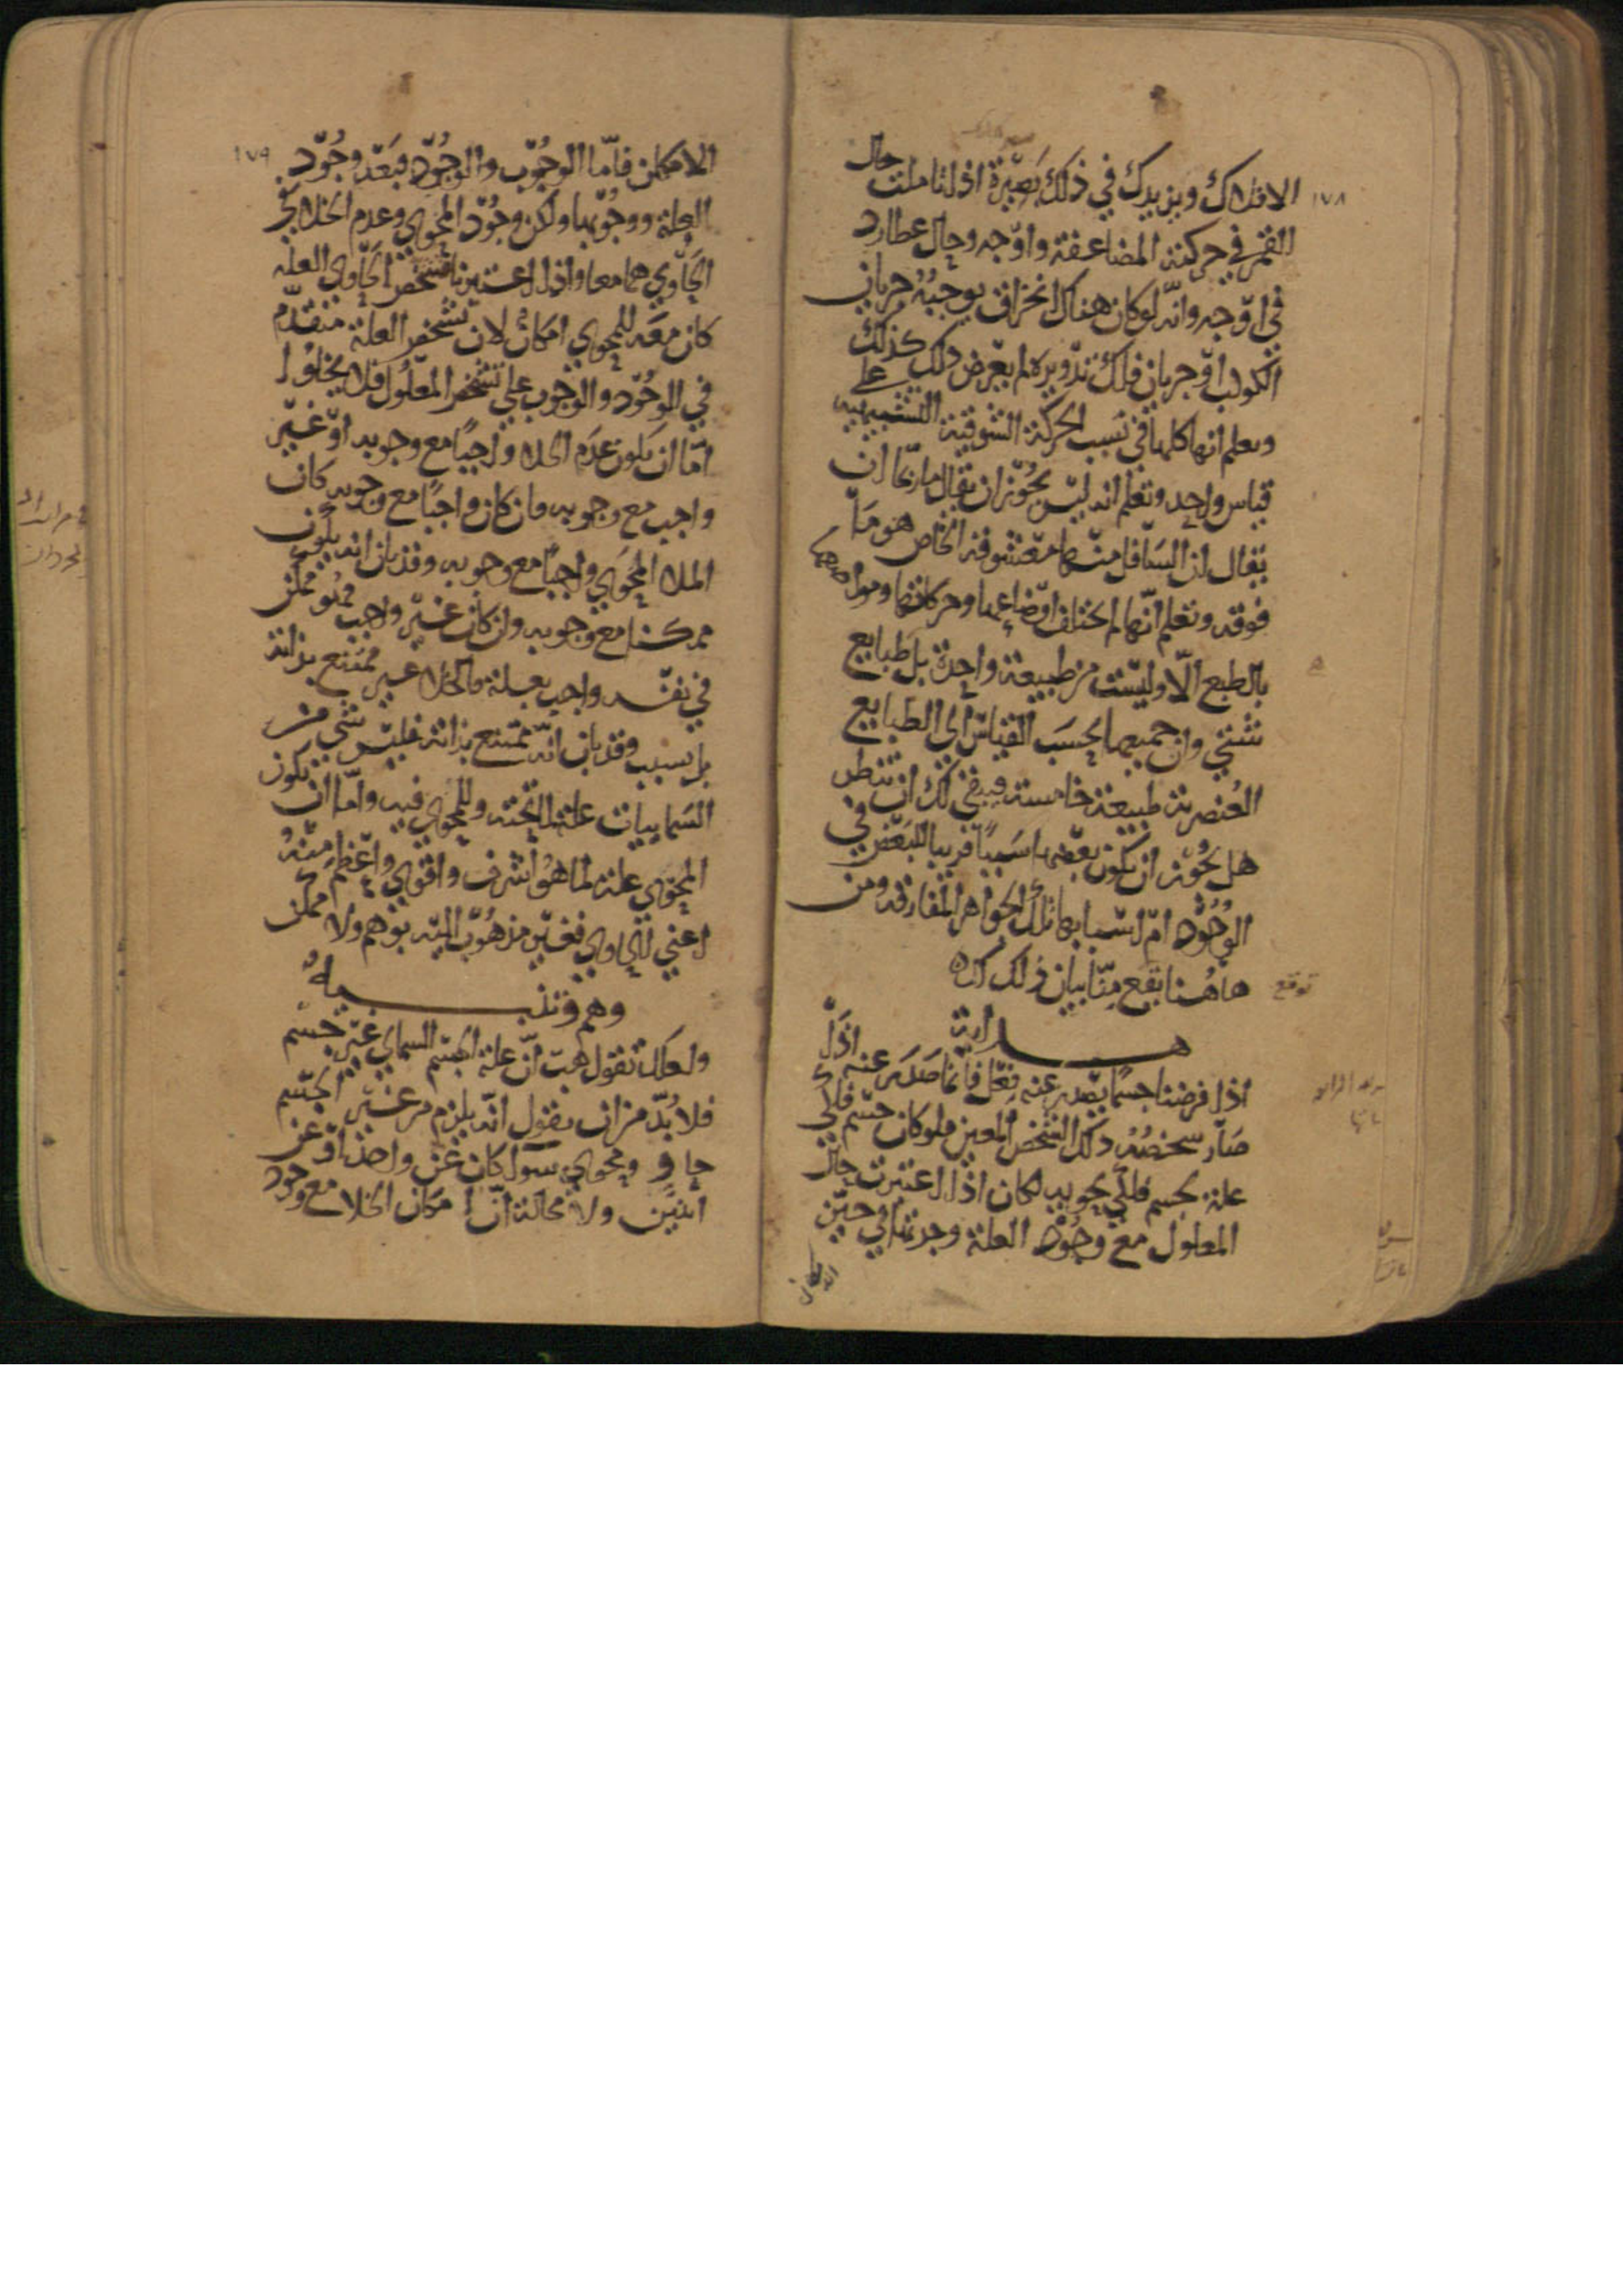 ١٧٨
الافلاك ويزيدك في ذلك بصيرة اذا تاملت حال
القمر في حركته المضاعفة واوجه وحال عطارد
في اوجه وانه لو كان هناك انخراق يوجبه جريان
الكوكب او جريان فلك تدويره لم يعرض ذلك كذلك
وتعلم انها كلها في سبب الحركة الشوقية التشبيهية على
قياس واحد وتعلم انه ليس يجوز ان يقال ما ربما ان
يقال ان السافل منها معشوقه الخاص هو ما
فوقه وتعلم انها لم تختلف اوضاعها وحركاتها ومواضعها
بالطبع الا وليست من طبيعة واحدة بل طبايع
شتي وان جميعها بحسب القياس الى الطبايع
العنصرية طبيعة خامسة فبقى لك ان تنظر
هل يجوز ان يكون بعضها سببا قريبا للبعض في
الوجود ام اسبابها تلك الجواهر المفارقة ومن
هاهنا يقع منا بيان ذلك لك
توقع
هداية
اذا فرضنا جسما يصدر عنه فعل فانما صدر عنه اذا
صار شخصه ذلك الشخص المعين فلو كان جسم فلكي
علة لجسم فلكي يحويه لكان اذا اعتبرت حال
المعلول مع وجود العلة وجدتها في حين
١٧٩
الامكان فاما الوجوب والوجود فبعد وجود
العلة ووجوبها ولكن وجود المحوي وعدم الخلا في
الحاوي هما معا واذا اعتبرنا تشخص الحاوي العلة
كان معه للمحوي امكان لان تشخص العلة متقدم
في الوجود والوجوب على تشخص المعلول فلا يخلوا
اما ان يكون عدم الخلا واجبا مع وجوبه او غير
واجب مع وجوبه فان كان واجبا مع وجوبه كان
الملا المحوي واجبا مع وجوبه وقد بان انه يكون
ممكنا مع وجوبه وان كان غير واجب فهو ممكن
في نفسه واجب بعلة فالخلا غير ممتنع بذاته
بل بسبب وقد بان انه ممتنع بذاته فليس شي من
السماييات علة لما تحته وللمحوي فيه واما ان يكون
المحوي علة لما هو اشرف واقوي واعظم منه
اعني الحاوي فغير مذهوب اليه بوهم ولا ممكن
وهم وتنبيه
ولعلك تقول هب ان علة الجسم السماي غير جسم
فلا بد من ان تقول انه يلزم من غير الجسم
حاو ومحوي سوا كان عن واحد او عن
اثنين ولا محالة ان امكان الخلا مع وجود